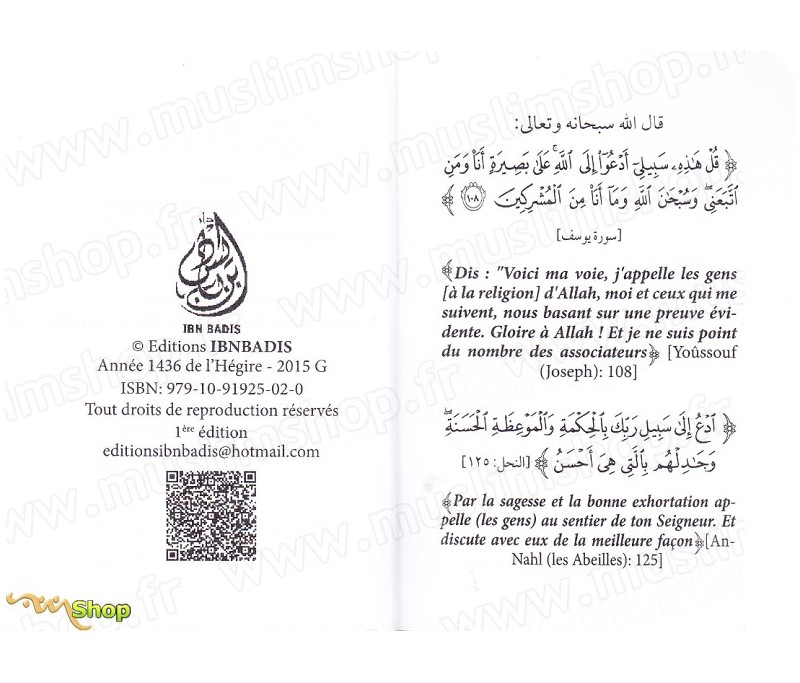 IBN BADIS
© Editions IBNBADIS
Année 1436 de l'Hégire - 2015 G
ISBN: 979-10-91925-02-0
Tout droits de reproduction réservés
1ère édition
editionsibnbadis@hotmail.com
قال الله سبحانه وتعالى:
﴿ قُلْ هَٰذِهِۦ سَبِيلِىٓ أَدْعُوٓا۟ إِلَى ٱللَّهِ ۚ عَلَىٰ بَصِيرَةٍ أَنَا۠ وَمَنِ
ٱتَّبَعَنِى ۖ وَسُبْحَٰنَ ٱللَّهِ وَمَآ أَنَا۠ مِنَ ٱلْمُشْرِكِينَ ١٠٨ ﴾
[سورة يوسف]
﴾Dis : "Voici ma voie, j'appelle les gens
[à la religion] d'Allah, moi et ceux qui me
suivent, nous basant sur une preuve évi-
dente. Gloire à Allah ! Et je ne suis point
du nombre des associateurs﴿ [Yoûssouf
(Joseph): 108]
﴿ ٱدْعُ إِلَىٰ سَبِيلِ رَبِّكَ بِٱلْحِكْمَةِ وَٱلْمَوْعِظَةِ ٱلْحَسَنَةِ ۖ
وَجَٰدِلْهُم بِٱلَّتِى هِىَ أَحْسَنُ ﴾ [النحل: ١٢٥]
﴾Par la sagesse et la bonne exhortation ap-
pelle (les gens) au sentier de ton Seigneur. Et
discute avec eux de la meilleure façon﴿[An-
Nahl (les Abeilles): 125]
Shop
www.muslimshop.fr